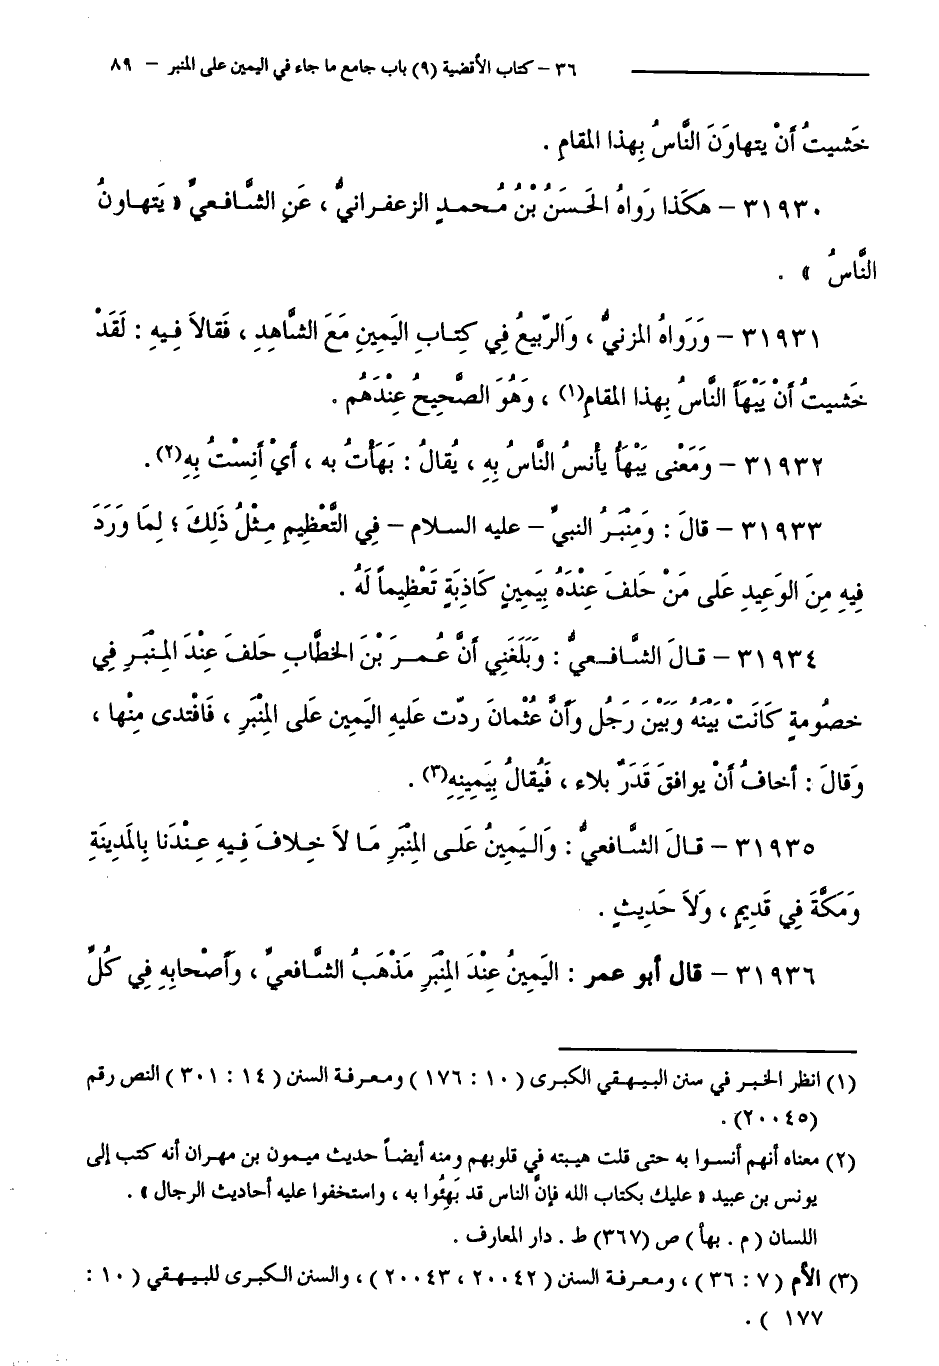 ٣٦ – كتاب الأقضية (٩) باب جامع ما جاء في اليمين على المنبر – ٨٩
خَشيتُ أَنْ يتهاوَنَ النَّاسُ بِهذا المقامِ .
٣١٩٣٠ – هكَذا رَواهُ الحَسَنُ بْنُ مُحمدٍ الزعفرانيُّ ، عَنِ الشَّافعيِّ « يَتهاونُ
النَّاسُ » .
٣١٩٣١ – وَرَواهُ المزنيُّ ، وَالرّبيعُ فِي كِتابِ اليَمينِ مَعَ الشَّاهدِ ، فَقالاَ فيهِ : لَقَدْ
خَشيتُ أَنْ يَبْهَأَ النَّاسُ بِهذا المقامِ(١) ، وَهُوَ الصَّحيحُ عِنْدَهُم .
٣١٩٣٢ – وَمَعْنى يَبْهَأُ يأنسُ النَّاسُ بِهِ ، يُقالُ : بَهَأتُ به ، أيْ أَنِسْتُ بِهِ(٢).
٣١٩٣٣ – قالَ : وَمِنْبَرُ النبيِّ – عليه السلام – فِي التَّعْظيمِ مِثْلُ ذَلِكَ ؛ لِمَا وَرَدَ
فِيهِ مِنَ الوَعِيدِ عَلى مَنْ حَلفَ عِنْدَهُ بِيَمينٍ كَاذِبَةٍ تَعْظيماً لَهُ .
٣١٩٣٤ – قالَ الشَّافعيُّ : وَبَلَغَنِي أَنَّ عُمرَ بْنَ الخطَّابِ حَلفَ عِنْدَ المِنْبَرِ فِي
خصُومةٍ كَانَتْ بَيْنَهُ وَبَيْنَ رَجُل وَأَنَّ عُثْمانَ ردّت عليهِ اليَمين عَلى المِنْبَرِ ، فَافْتدى مِنْها ،
وَقالَ : أخافُ أَنْ يوافقَ قَدَرٌ بلاء ، فَيُقالُ بِيَمِينِهِ(٣) .
٣١٩٣٥ – قالَ الشَّافعيُّ : وَاليَمينُ عَلى المِنْبَرِ مَا لاَ خِلافَ فِيهِ عِنْدَنا بِالمَدِينَةِ
وَمَكَّةَ فِي قَدِيمٍ ، وَلاَ حَدِيثٍ .
٣١٩٣٦ – قال أبو عمر : اليَمينُ عِنْدَ المِنْبَرِ مَذْهَبُ الشَّافعيِّ ، وَأَصْحابِهِ فِي كُلِّ
(١) انظر الخبر في سنن البيهقي الكبرى ( ١٠ : ١٧٦ ) ومعرفة السنن ( ١٤ : ٣٠١ ) النص رقم
(٢٠٠٤٥) .
(٢) معناه أنهم أنسوا به حتى قلت هيبته في قلوبهم ومنه أيضاً حديث ميمون بن مهران أنه كتب إلى
يونس بن عبيد « عليك بكتاب الله فإنَّ الناس قد بَهَئُوا به ، واستخفوا عليه أحاديث الرجال » .
اللسان ( م . بهأ ) ص (٣٦٧) ط . دار المعارف .
(٣) الأم ( ٧ : ٣٦ ) ، ومعرفة السنن ( ٢٠٠٤٢ ، ٢٠٠٤٣ ) ، والسنن الكبرى للبيهقي ( ١٠ :
١٧٧ ) .